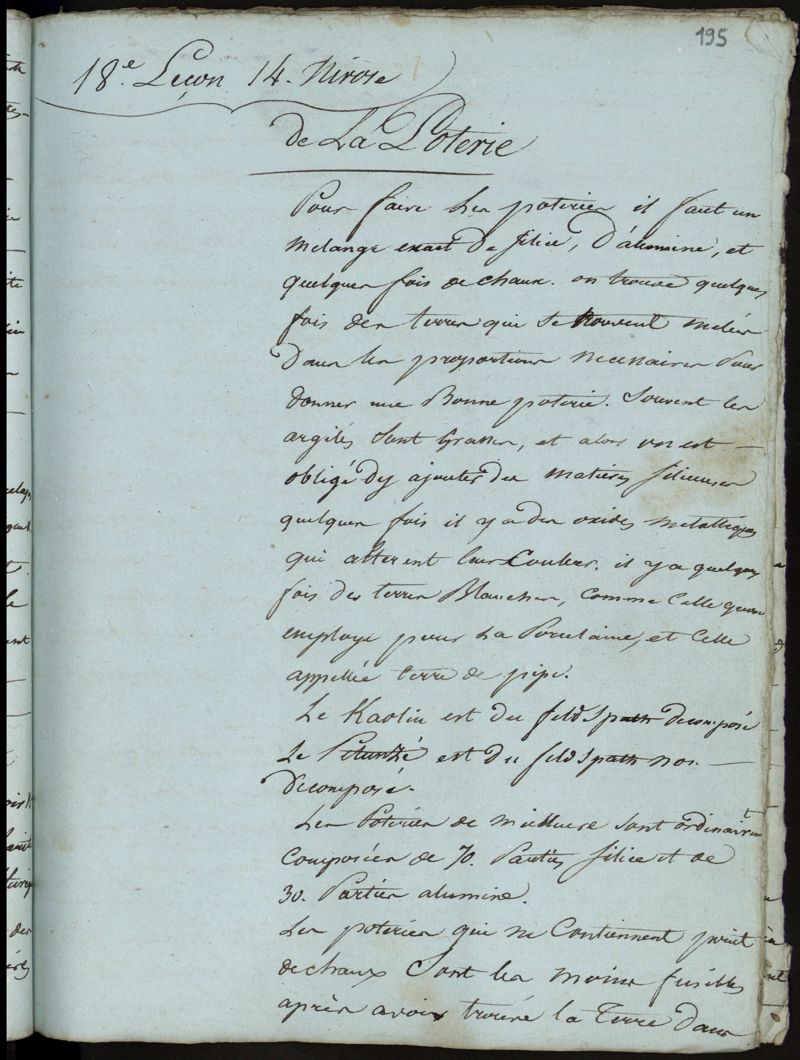 195
18.e Leçon 14. Nivose
de La Poterie
Pour faire les poteries il faut un
melange exact de silice, d'alumine, et
quelques fois de chaux. on trouve quelques
fois des terres qui se trouvent mélées
dans les proportions necessaires pour
donner une Bonne poterie. Souvent les
argiles sont grasses, et alors on est —
obligé dy ajouter des matières siliceuses
quelques fois il y a des oxides metalliques
qui alterent leur Couleur. il y a quelques
fois des terres Blanches, comme Celle quon
employe pour La Porcelaine, et Celle
appellée terre de pipe.
Le Kaolin est du feldspath decomposé
Le Petunzé est du feldspath non —
decomposé.
Les Poteries de sont ordinairemt
Composées de 70. Parties silice et de
30. Parties alumine.
Les poteries qui ne Contiennent point
de chaux sont les moins fusibles
après avoir trouvé la Terre dans